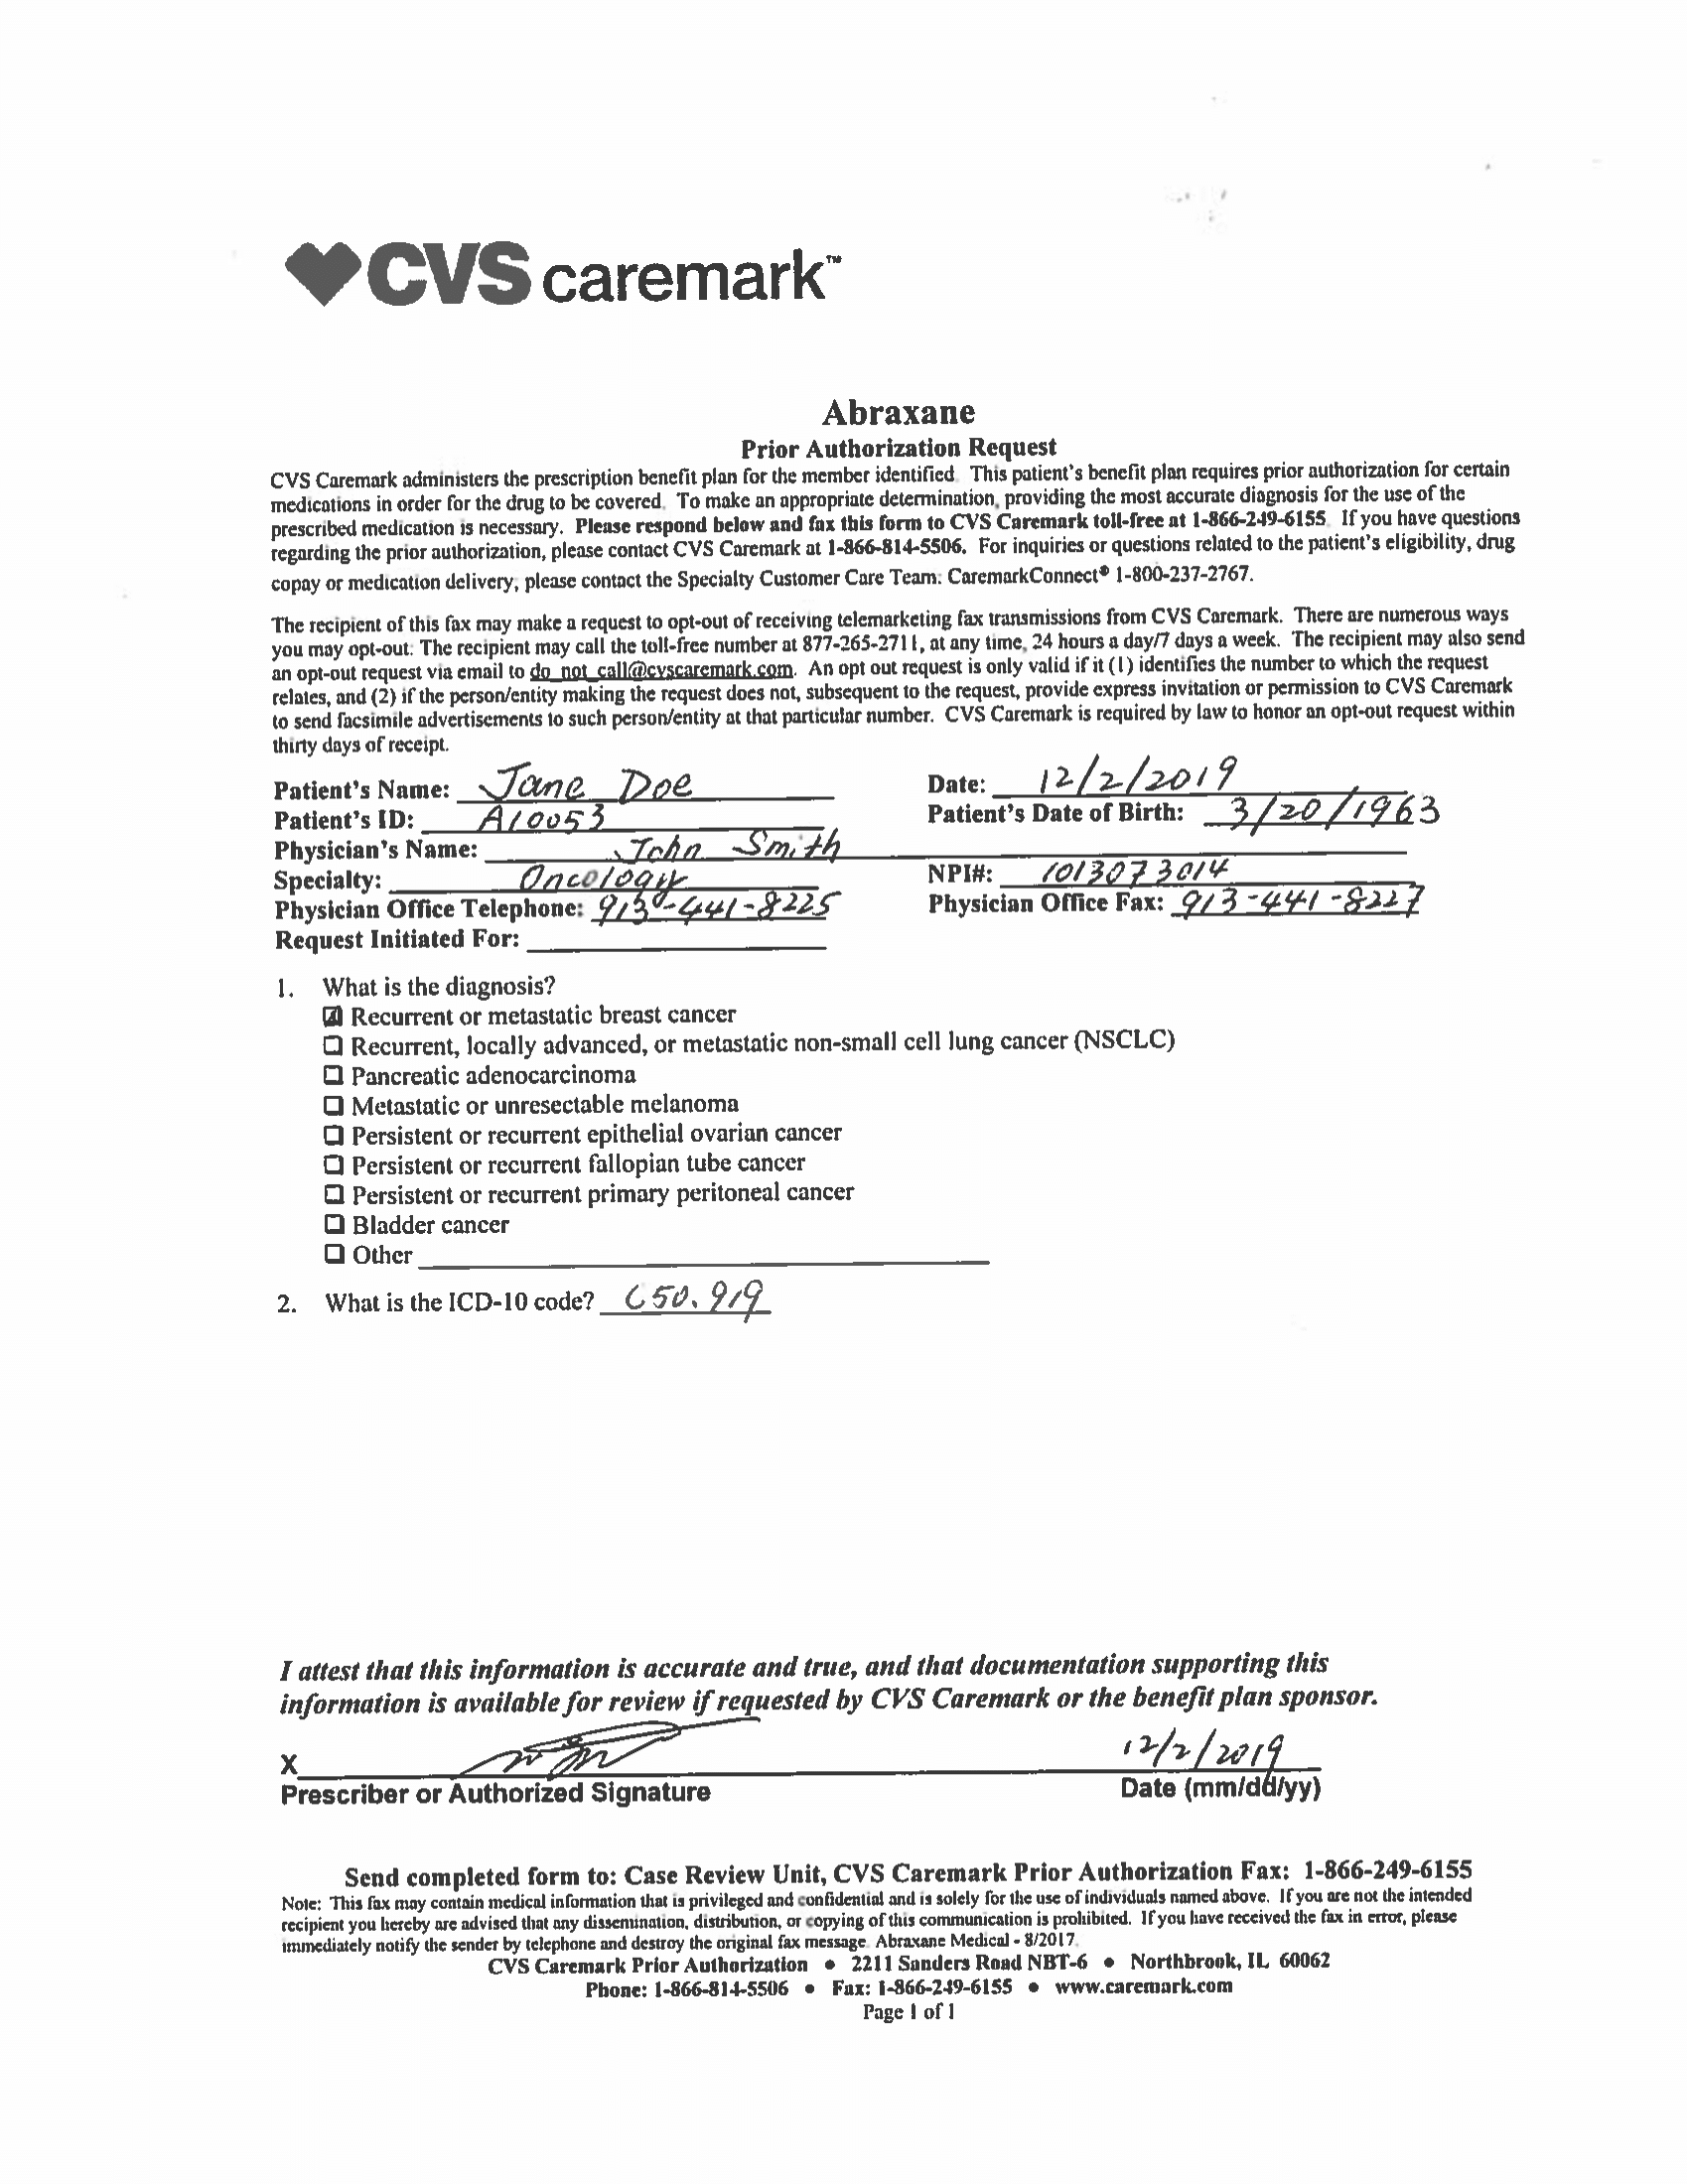 CVS caremark™
Abraxane
Prior Authorization Request
CVS Caremark administers the prescription benefit plan for the member identified. This patient's benefit plan requires prior authorization for certain
medications in order for the drug to be covered. To make an appropriate determination, providing the most accurate diagnosis for the use of the
prescribed medication is necessary. Please respond below and fax this form to CVS Caremark toll-free at 1-866-249-6155. If you have questions
regarding the prior authorization, please contact CVS Caremark at 1-866-814-5506. For inquiries or questions related to the patient's eligibility, drug
copay or medication delivery, please contact the Specialty Customer Care Team: CaremarkConnect® 1-800-237-2767.
The recipient of this fax may make a request to opt-out of receiving telemarketing fax transmissions from CVS Caremark. There are numerous ways
you may opt-out: The recipient may call the toll-free number at 877-265-2711, at any time, 24 hours a day/7 days a week. The recipient may also send
an opt-out request via email to do_not_call@cvscaremark.com. An opt out request is only valid if it (1) identifies the number to which the request
relates, and (2) if the person/entity making the request does not, subsequent to the request, provide express invitation or permission to CVS Caremark
to send facsimile advertisements to such person/entity at that particular number. CVS Caremark is required by law to honor an opt-out request within
thirty days of receipt.
Patient's Name: Jane Doe Date: 12/2/2019
Patient's ID: A10053 Patient's Date of Birth: 3/20/1963
Physician's Name: John Smith
Specialty: Oncology NPI#: 1013073014
Physician Office Telephone: 913-441-8225 Physician Office Fax: 913-441-8227
Request Initiated For:
1. What is the diagnosis?
Recurrent or metastatic breast cancer
Recurrent, locally advanced, or metastatic non-small cell lung cancer (NSCLC)
Pancreatic adenocarcinoma
Metastatic or unresectable melanoma
Persistent or recurrent epithelial ovarian cancer
Persistent or recurrent fallopian tube cancer
Persistent or recurrent primary peritoneal cancer
Bladder cancer
Other
2. What is the ICD-10 code? C50.919
I attest that this information is accurate and true, and that documentation supporting this
information is available for review if requested by CVS Caremark or the benefit plan sponsor.
X 12/2/2019
Prescriber or Authorized Signature Date (mm/dd/yy)
Send completed form to: Case Review Unit, CVS Caremark Prior Authorization Fax: 1-866-249-6155
Note: This fax may contain medical information that is privileged and confidential and is solely for the use of individuals named above. If you are not the intended
recipient you hereby are advised that any dissemination, distribution, or copying of this communication is prohibited. If you have received the fax in error, please
immediately notify the sender by telephone and destroy the original fax message. Abraxane Medical - 8/2017.
CVS Caremark Prior Authorization • 2211 Sanders Road NBT-6 • Northbrook, IL 60062
Phone: 1-866-814-5506 • Fax: 1-866-249-6155 • www.caremark.com
Page 1 of 1